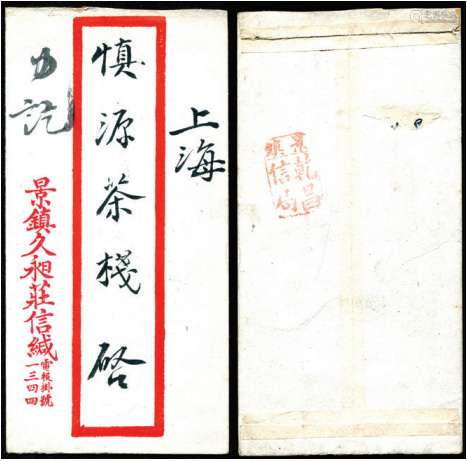 上海
慎源茶棧啓
力訖
景鎮久昶莊信緘
電報掛號
一三四四
景乾昌
信局